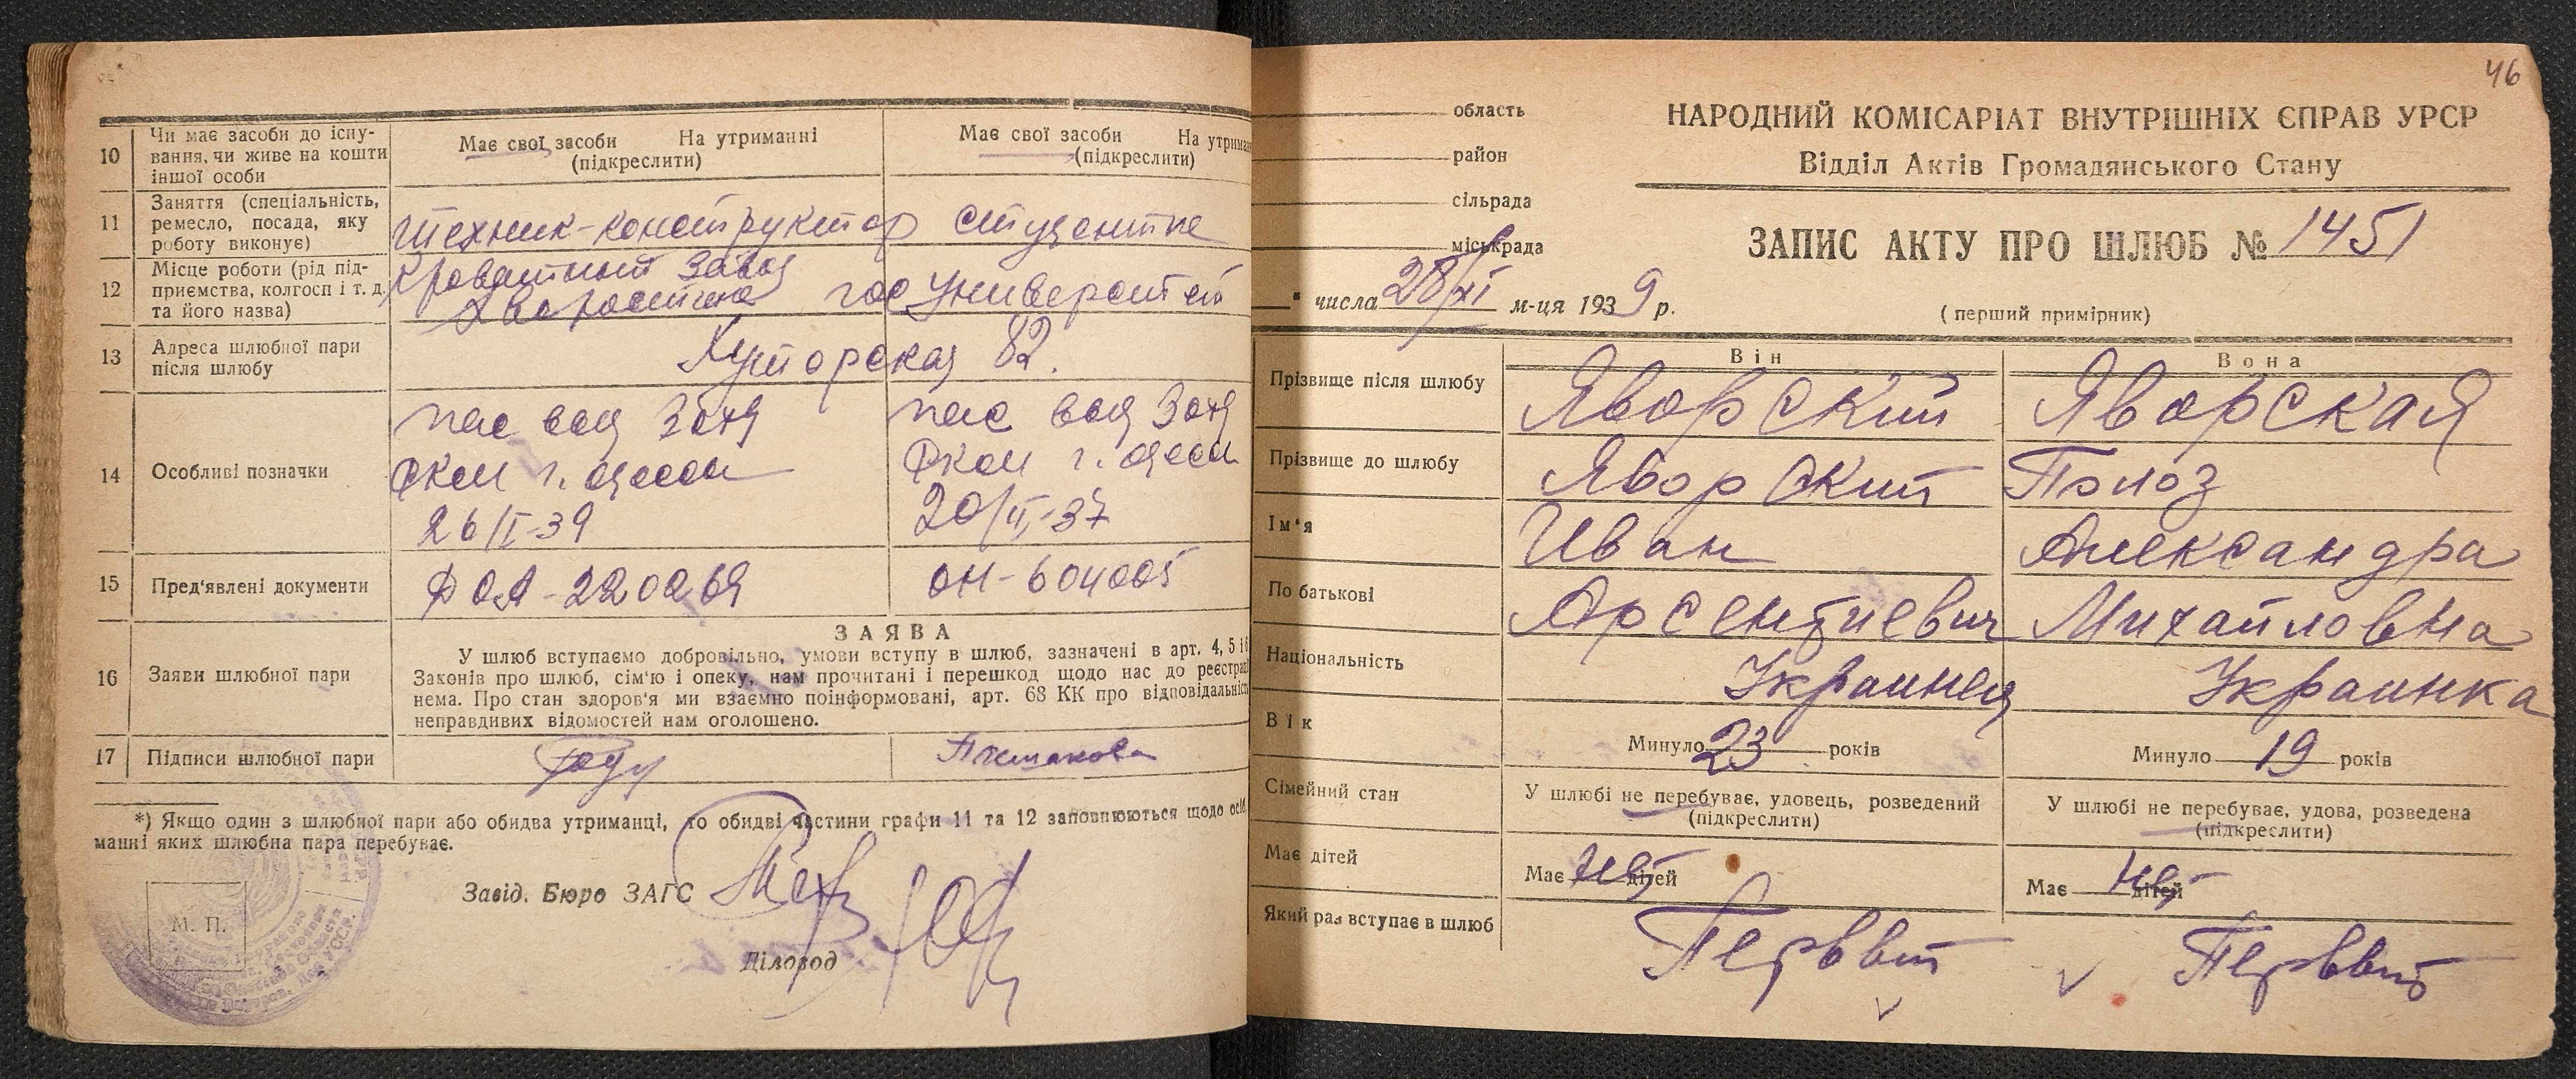 10 Чи має засоби до існу-
вання, чи живе на кошти
іншої особи
Має свої засоби На утриманні
(підкреслити)
Має свої засоби На утриман
(підкреслити)
11 Заняття (спеціальність,
ремесло, посада, яку
роботу виконує)
техник-конструктор
студентка
12 Місце роботи (рід під-
приємства, колгосп і т. д.
та його назва)
Кроватный завод
гос университет
13 Адреса шлюбної пари
після шлюбу
Хуторская 82.
14 Особливі позначки
пас выд 3 отд
РКМ г. Одессы
26/I-39
пас выд 3 отд
РКМ г. Одессы
20/II-37
15 Пред'явлені документи
220269
ОН-604005
16 Заяви шлюбної пари
ЗАЯВА
У шлюб вступаємо добровільно, умови вступу в шлюб, зазначені в арт. 4, 5 і 6
Законів про шлюб, сім'ю і опеку, нам прочитані і перешкод щодо нас до реєстрац
нема. Про стан здоров'я ми взаємно поінформовані, арт. 68 КК про відповідальніст
неправдивих відомостей нам оголошено.
17 Підписи шлюбної пари
*) Якщо один з шлюбної пари або обидва утриманці, то обидві частини графи 11 та 12 заповнюються щодо осіб
манні яких шлюбна пара перебуває.
Завід. Бюро ЗАГС
М. П.
Діловод
46
область
район
сільрада
міськрада
" числа 28/XI м-ця 1939 р.
НАРОДНИЙ КОМІСАРІАТ ВНУТРІШНІХ ЄПРАВ УРСР
Відділ Актів Громадянського Стану
ЗАПИС АКТУ ПРО ШЛЮБ № 1451
(перший примірник)
Він Вона
Прізвище після шлюбу Яворский Яворская
Прізвище до шлюбу Яворский Полоз
Ім'я Иван Александра
По батькові Арсентиевич Михайловна
Національність Украинец Украинка
Вік Минуло 23 років Минуло 19 років
Сімейний стан
У шлюбі не перебуває, удовець, розведений
(підкреслити)
У шлюбі не перебуває, удова, розведена
(підкреслити)
Має дітей Має нет дітей Має нет дітей
Який раз вступає в шлюб Первый Первый